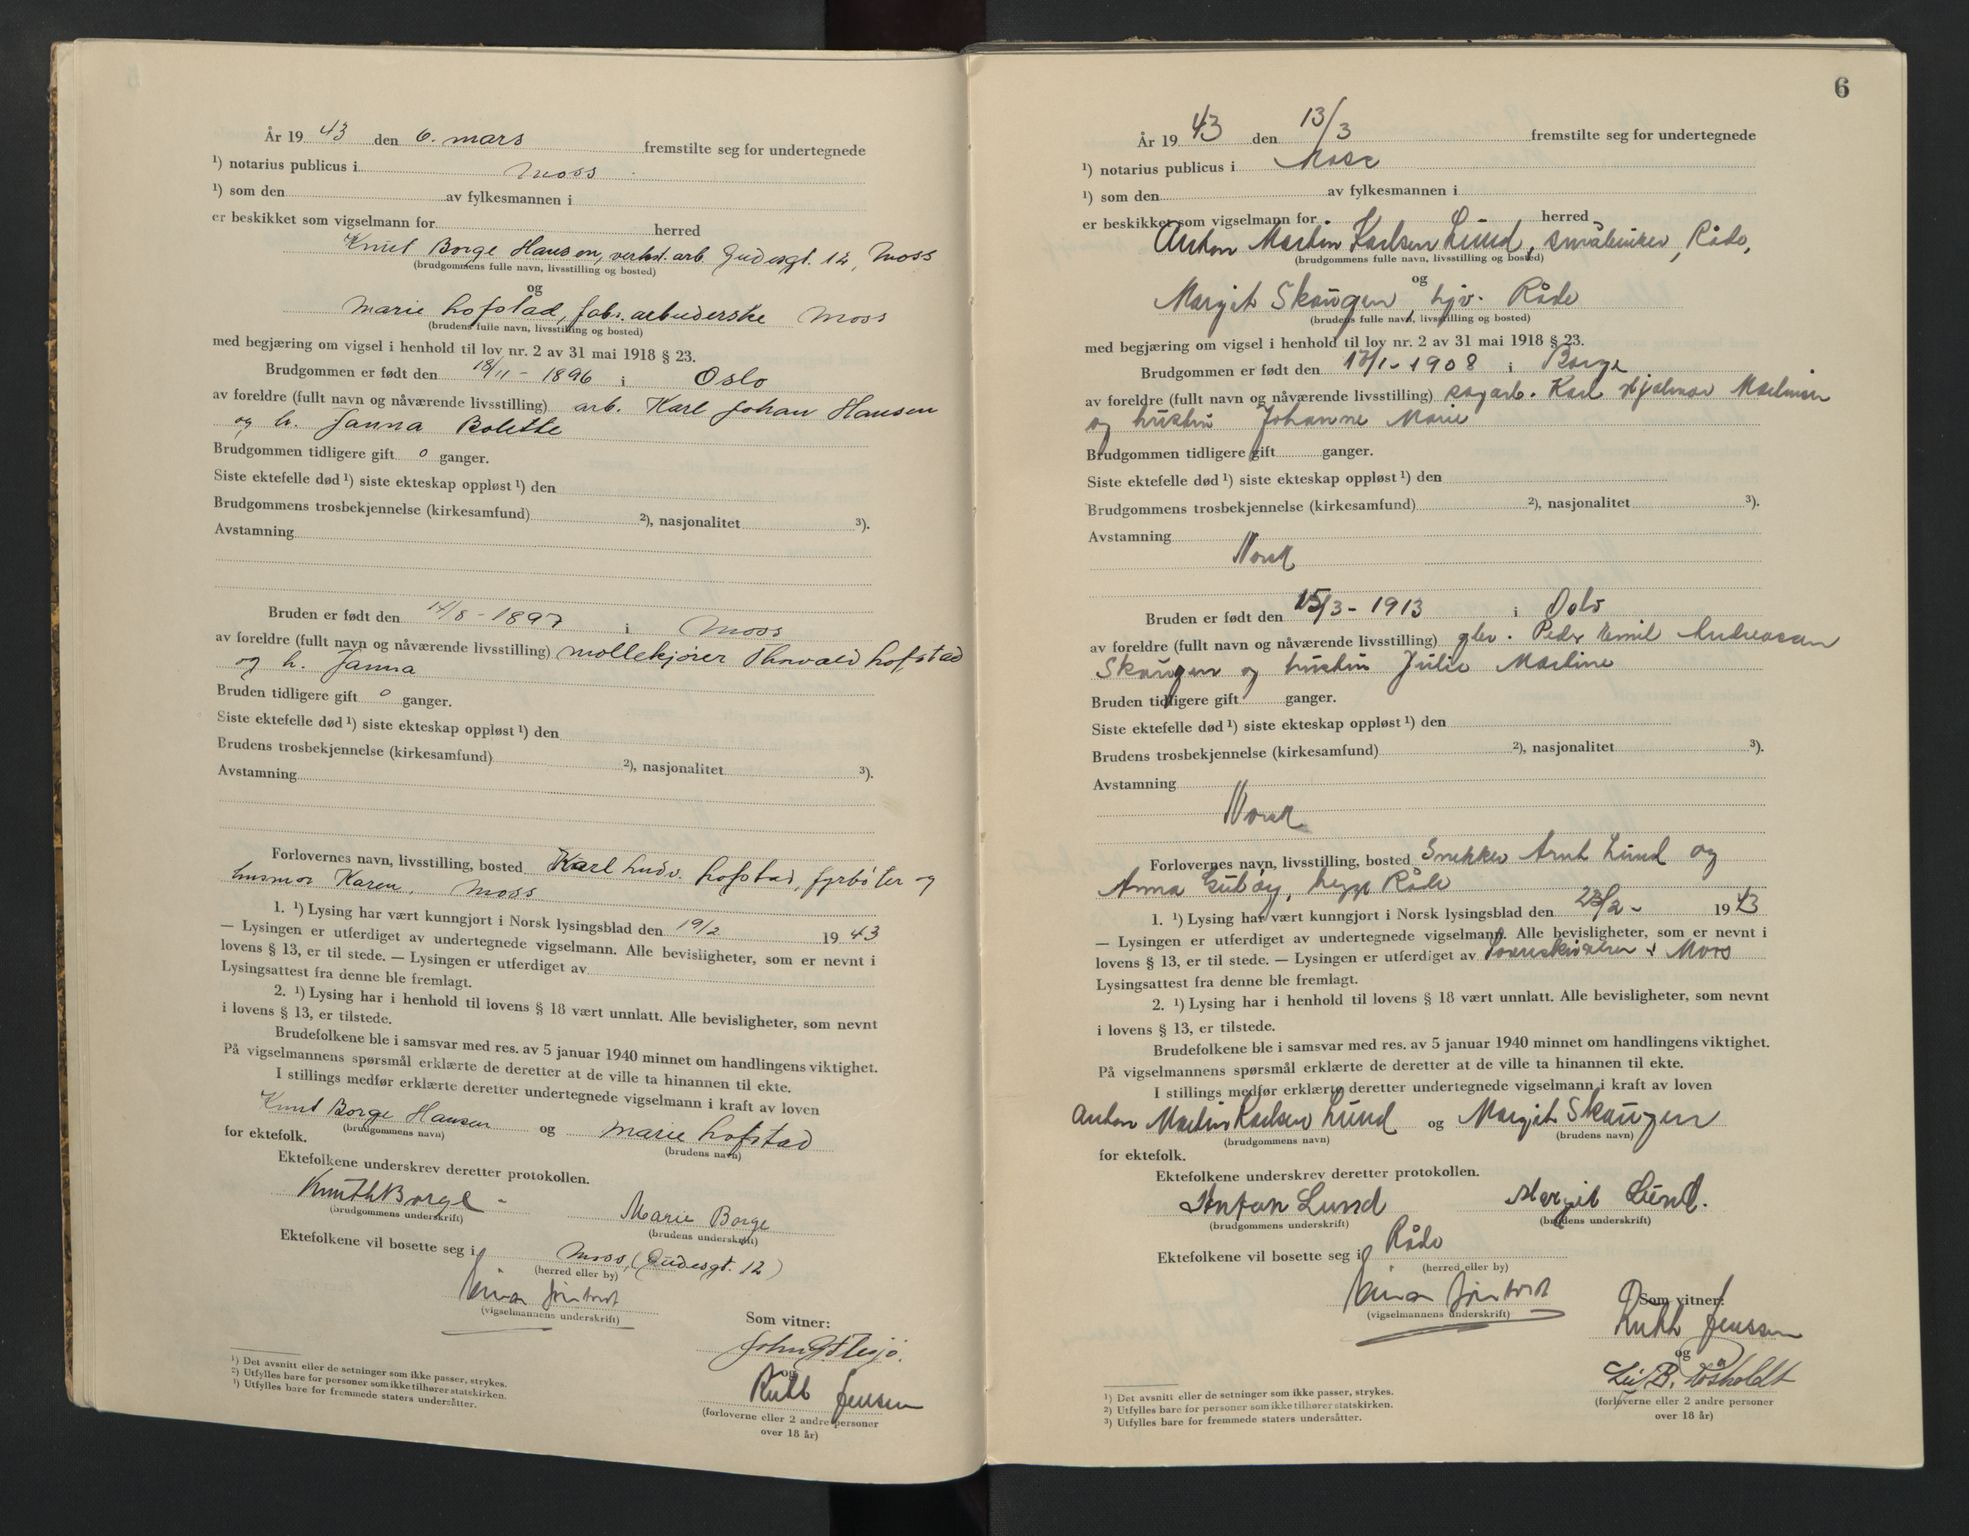 År 19 43 den 6. mars fremstilte seg for undertegnede
¹) notarius publicus i Moss
¹) som den av fylkesmannen i
er beskikket som vigselmann for herred
Knut Borge Hansen, verkst. arb. Gudesgt. 12, Moss
(brudgommens fulle navn, livsstilling og bosted)
og
Marie Hofstad, fabr. arbeiderske Moss
(brudens fulle navn, livsstilling og bosted)
med begjæring om vigsel i henhold til lov nr. 2 av 31 mai 1918 § 23.
Brudgommen er født den 18/11 - 1896 i Oslo
av foreldre (fullt navn og nåværende livsstilling) arb. Karl Johan Hansen
og h. Janna Bolette
Brudgommen tidligere gift 0 ganger.
Siste ektefelle død ¹) siste ekteskap oppløst ¹) den
Brudgommens trosbekjennelse (kirkesamfund) ²), nasjonalitet ³).
Avstamning
Bruden er født den 14/8 - 1897 i Moss
av foreldre (fullt navn og nåværende livsstilling) møllekjører Thorvald Hofstad
og h. Janna
Bruden tidligere gift 0 ganger.
Siste ektefelle død ¹) siste ekteskap oppløst ¹) den
Brudens trosbekjennelse (kirkesamfund) ²), nasjonalitet ³).
Avstamning
Forlovernes navn, livsstilling, bosted Karl Ludv. Hofstad, fyrbøter og
husmor Karen, Moss
1. ¹) Lysing har vært kunngjort i Norsk lysingsblad den 19/2 19 43
— Lysingen er utferdiget av undertegnede vigselmann. Alle bevisligheter, som er nevnt i
lovens § 13, er til stede. — Lysingen er utferdiget av
Lysingsattest fra denne ble fremlagt.
2. ¹) Lysing har i henhold til lovens § 18 vært unnlatt. Alle bevisligheter, som nevnt
i lovens § 13, er tilstede.
Brudefolkene ble i samsvar med res. av 5 januar 1940 minnet om handlingens viktighet.
På vigselmannens spørsmål erklærte de deretter at de ville ta hinannen til ekte.
I stillings medfør erklærte deretter undertegnede vigselmann i kraft av loven
Knut Borge Hansen og Marie Hofstad
(brudgommens navn) (brudens navn)
for ektefolk.
Ektefolkene underskrev deretter protokollen.
Knuth Borge Marie Borge
(brudgommens underskrift) (brudens underskrift)
Ektefolkene vil bosette seg i Moss, (Gudesgt. 12)
(herred eller by)
(vigselmannens underskrift)
Som vitner:
og
Ruth Jensen
(forloverne eller 2 andre personer
over 18 år)
¹) Det avsnitt eller de setninger som ikke passer, strykes.
²) Utfylles bare for personer som ikke tilhører statskirken.
³) Utfylles bare for fremmede staters undersåtter.
6
År 19 43 den 13/3 fremstilte seg for undertegnede
¹) notarius publicus i Moss
¹) som den av fylkesmannen i
er beskikket som vigselmann for herred
Anton Martin Karlsen Lund, småbruker, Råde,
(brudgommens fulle navn, livsstilling og bosted)
og
Margit Skaugen, hjv. Råde
(brudens fulle navn, livsstilling og bosted)
med begjæring om vigsel i henhold til lov nr. 2 av 31 mai 1918 § 23.
Brudgommen er født den /1 - 1908 i Borge
av foreldre (fullt navn og nåværende livsstilling) sagarb. Karl Hjalmar Martinsen
og hustru Johanne Marie
Brudgommen tidligere gift ganger.
Siste ektefelle død ¹) siste ekteskap oppløst ¹) den
Brudgommens trosbekjennelse (kirkesamfund) ²), nasjonalitet ³).
Avstamning
Norsk
Bruden er født den 15/3 - 1913 i Oslo
av foreldre (fullt navn og nåværende livsstilling) Peder Emil Andreassen
Skaugen og hustru Julie Martine
Bruden tidligere gift ganger.
Siste ektefelle død ¹) siste ekteskap oppløst ¹) den
Brudens trosbekjennelse (kirkesamfund) ²), nasjonalitet ³).
Avstamning
Norsk
Forlovernes navn, livsstilling, bosted Snekker Arnt Lund og
Anna begge Råde
1. ¹) Lysing har vært kunngjort i Norsk lysingsblad den 23/2 - 19 43
— Lysingen er utferdiget av undertegnede vigselmann. Alle bevisligheter, som er nevnt i
lovens § 13, er til stede. — Lysingen er utferdiget av Sorenskriveren i Moss
Lysingsattest fra denne ble fremlagt.
2. ¹) Lysing har i henhold til lovens § 18 vært unnlatt. Alle bevisligheter, som nevnt
i lovens § 13, er tilstede.
Brudefolkene ble i samsvar med res. av 5 januar 1940 minnet om handlingens viktighet.
På vigselmannens spørsmål erklærte de deretter at de ville ta hinannen til ekte.
I stillings medfør erklærte deretter undertegnede vigselmann i kraft av loven
Anton Martin Karlsen Lund og Margit Skaugen
(brudgommens navn) (brudens navn)
for ektefolk.
Ektefolkene underskrev deretter protokollen.
Anton Lund Margit Lund.
(brudgommens underskrift) (brudens underskrift)
Ektefolkene vil bosette seg i Råde
(herred eller by)
(vigselmannens underskrift)
Som vitner:
Ruth Jensen
og
(forloverne eller 2 andre personer
over 18 år)
¹) Det avsnitt eller de setninger som ikke passer, strykes.
²) Utfylles bare for personer som ikke tilhører statskirken.
³) Utfylles bare for fremmede staters undersåtter.